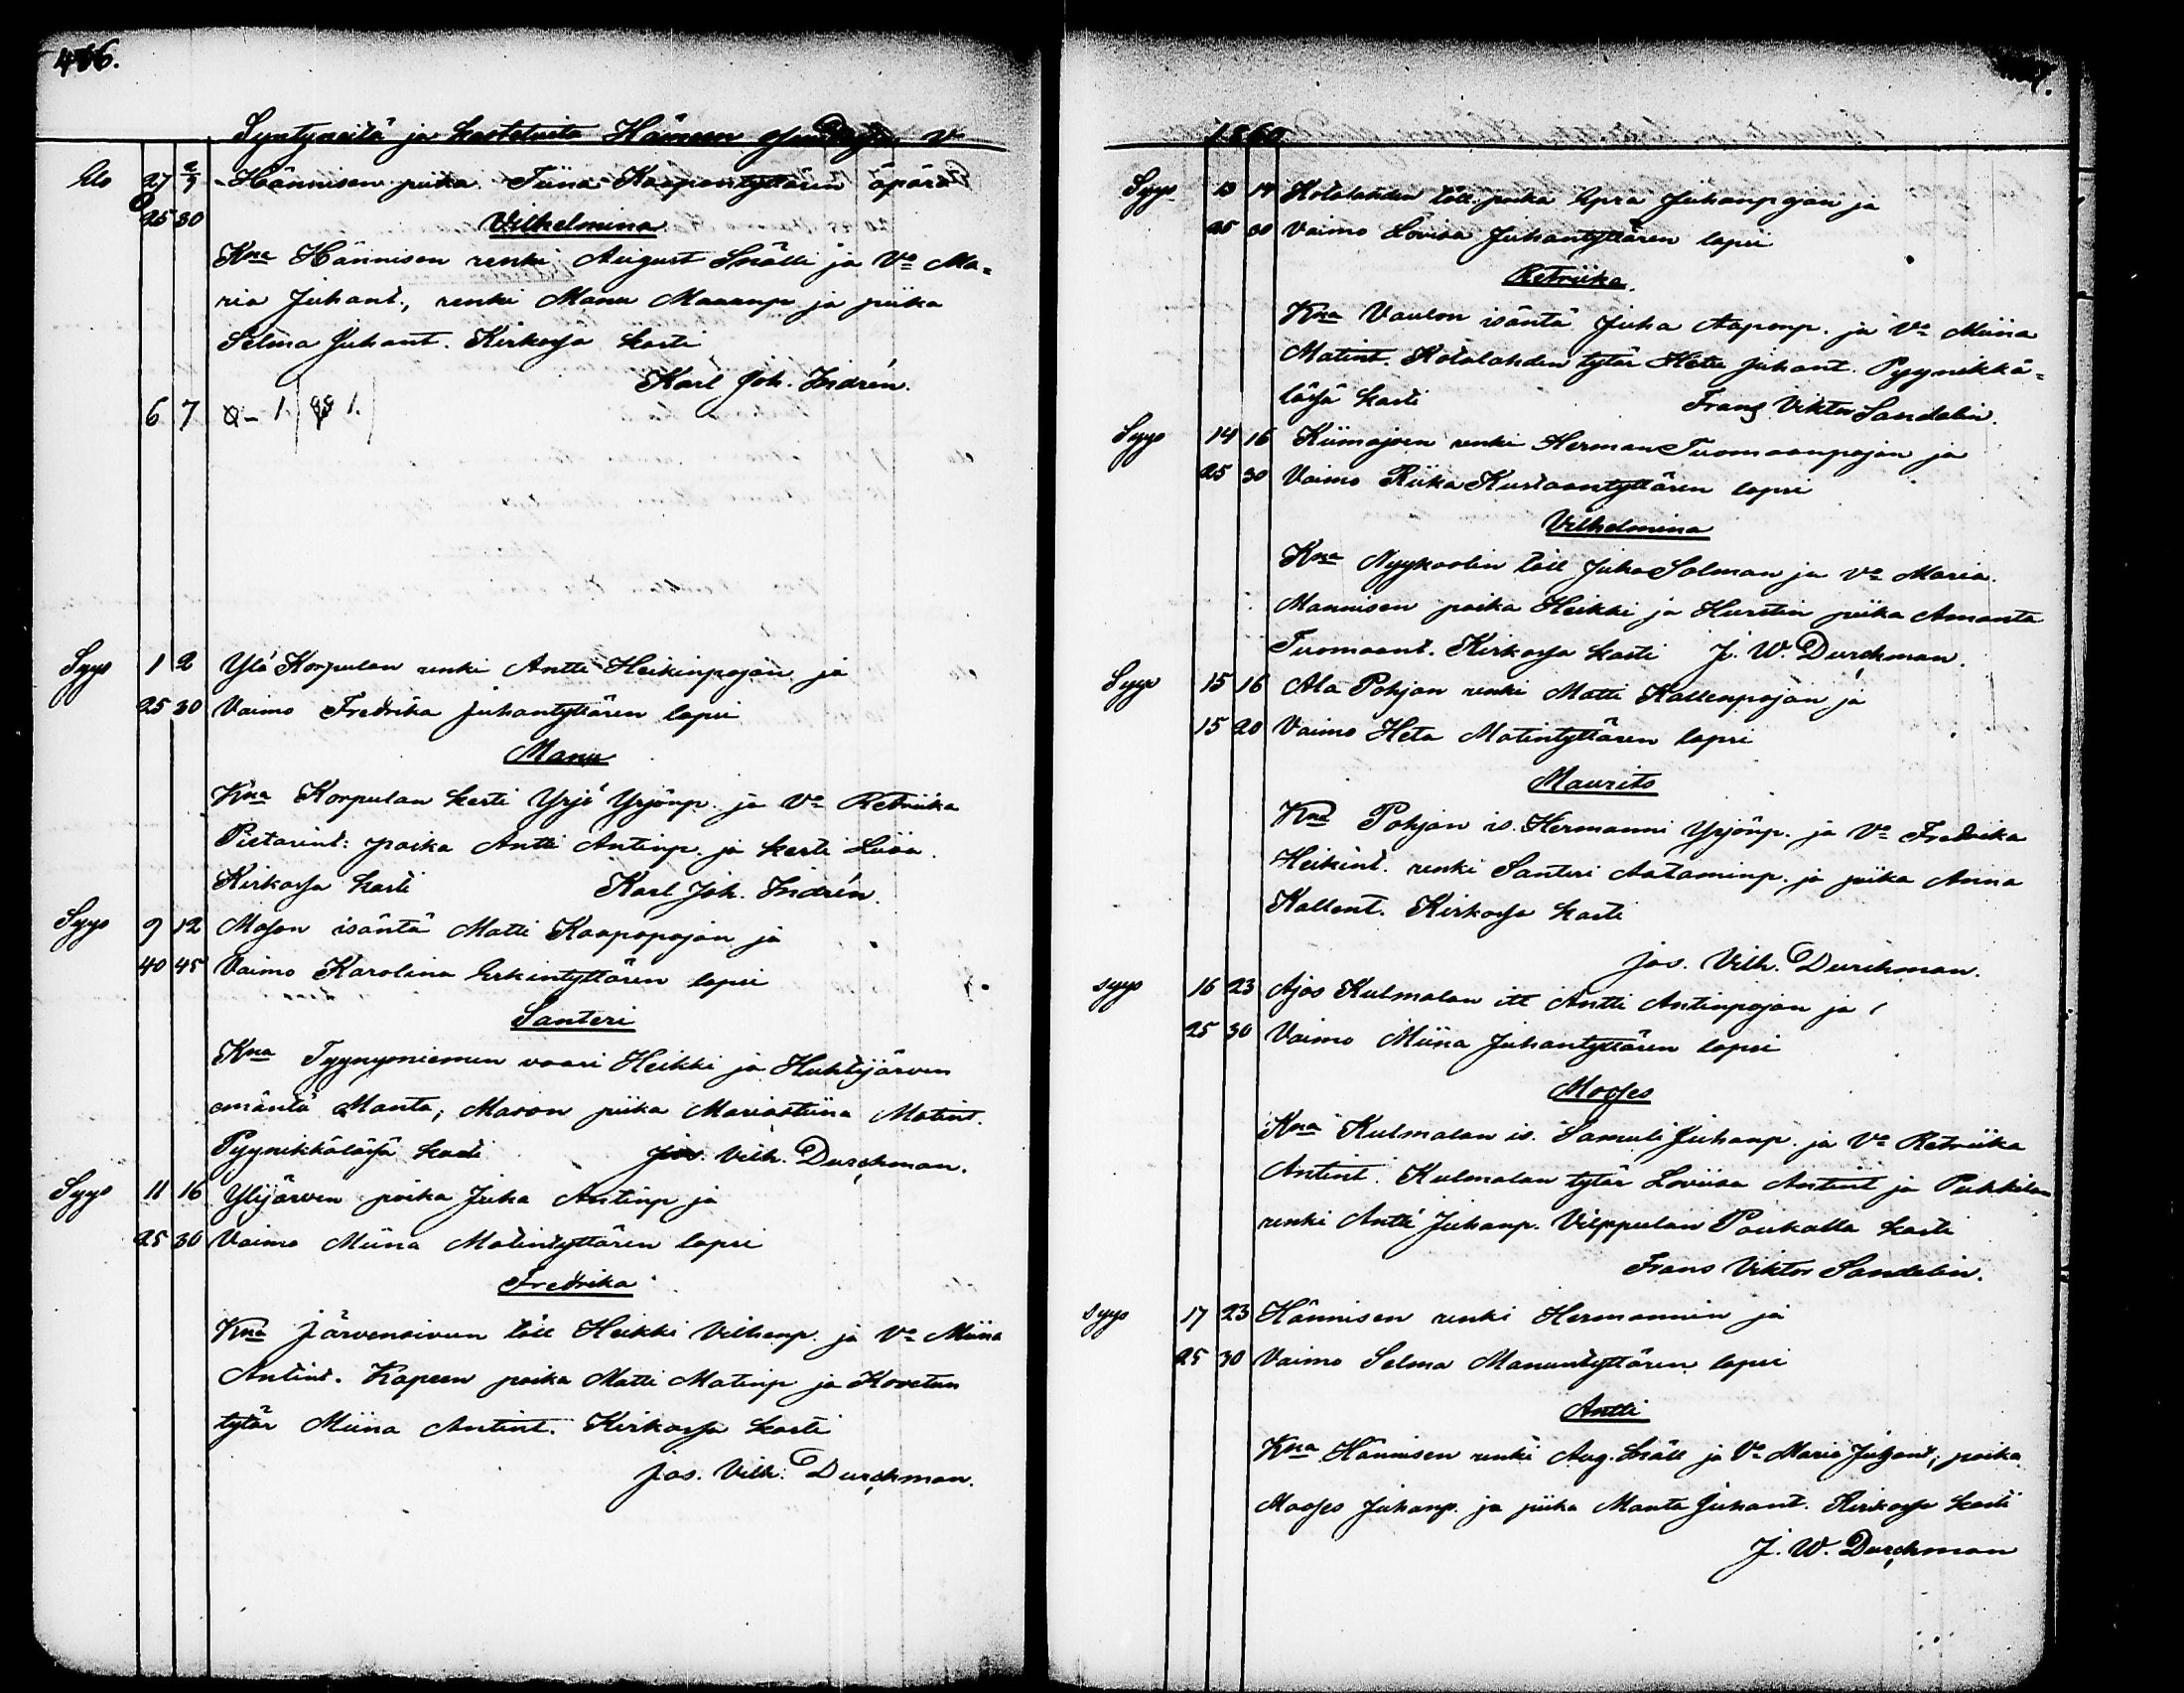 466.
Syntyneitä ja kastetuita Hämeen V.
Elo 27 2/9 Hännisen piika Tiina Kaapontyttären äpärä
25 30 Vilhelmina
Kna Hännisen renki August Snälli ja Vo Ma=
ria Juhant., renki Manu Mananp ja piika
Selma Juhant. Kirkossa kasti
Karl Joh. Indrén.
6 7 1. 1.
Syys 1 2 Ylä Korpulan renki Antti Heikinpojan ja
25 30 Vaimo Fredrika Juhantyttären lapsi
Manu
Kna Korpulan kesti Yrjö Yrjönp. ja Vo Retriika
Pietarint: poika Antti Antinp. ja kesti Liisa.
Kirkossa kasti Karl Joh. Indrén.
Syys 9 12 Mason isäntä Matti Kaapopojan ja
40 45 Vaimo Karolina Erkintyttären lapsi
Santeri
Kna Tyynyniemen vaari Heikki ja Huhtijärven
emäntä Manta, Mason piika Mariastiina Matint.
Pyynikkälässä kasti Jos. Vilh. Durchman.
Syys 11 16 Ylijärven poika Juha Antinp ja
25 30 Vaimo Miina Matintyttären lapsi
Fredrika
Kna Järvensivun töll Heikki Vilhenp. ja Vo Miina
Antint. Kapeen poika Matti Matinp ja Kovetun
tytär Miina Antint. Kirkossa kasti
Jos. Vilh. Durchman.
1860
Syys 13 14 Kotalahden töll. poika Epra Juhanpojan ja
25 30 Vaimo Lovisa Juhantyttären lapsi
Retriika.
Kna Vaulon isäntä Juha Aaponp. ja Vo Miina
Matint. Kotalahden tytär Heta Juhant. Pyynikkä=
lässä kasti Frans Viktor Sandelin.
Syys 14 16 Kiimajoen renki Herman Tuomaanpojan ja
25 30 Vaimo Riika Kustaantyttären lapsi
Vilhelmina
Kna Nyykoolin töll Juha Salman ja Vo Maria.
Mannisen poika Heikki ja Hurstin piika Amanta
Tuomaant. Kirkossa kasti J. W. Durchman.
Syys 15 16 Ala Pohjan renki Matti Kallenpojan ja
15 20 Vaimo Heta Matintyttären lapsi
Maurits
Kna Pohjan is. Hermanni Yrjönp. ja Vo Fredrika
Heikint. renki Santeri Aataminp. ja piika Anna
Kallent. Kirkossa kasti
Jos. Vilh. Durchman.
syys 16 23 Ajos Kulmalan itt Antti Antinpojan ja
25 30 Vaimo Miina Juhantyttären lapsi
Mooses
Kna Kulmalan is. Samuli Juhanp. ja Vo Retriika
Antint. Kulmalan tytär Loviisa Antint ja Pukkilan
renki Antti Juhanp. Vilppulan Poukalla kasti
Frans Viktor Sandelin.
syys 17 23 Hännisen renki Hermannin ja
25 30 Vaimo Selma Manuntyttären lapsi
Antti
Kna Hännisen renki Aug. Snäll ja Vo Maria Juhant, poika
Mooses Juhanp. ja piika Manta Juhant. Kirkossa kasti
J. W. Durchman